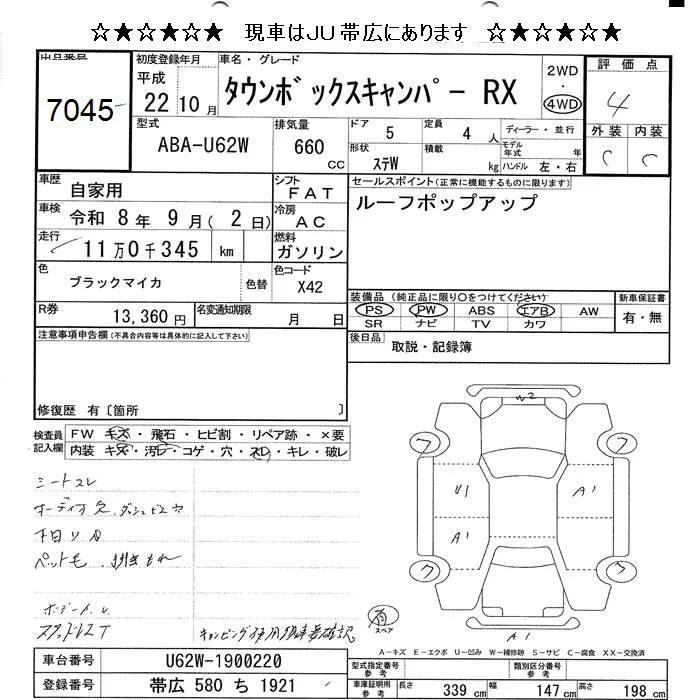 ☆★☆★☆★ 現車はJU帯広にあります ☆★☆★☆★
出品番号
7045
初度登録年月
平成
22 10月
車名・グレード
タウンボックスキャンパー RX
2WD
・
4WD
評価点
4
外装 内装
C C
型式
ABA-U62W
排気量
660 CC
ドア 5
定員 4人
形状 ステW
積載 kg
ディーラー・並行
モデル年式 年
ハンドル 左・右
車歴
自家用
シフト
FAT
車検
令和 8年 9月(2日)
冷房
AC
走行
11万0千345 km
燃料
ガソリン
色
ブラックマイカ
色替
色コード
X42
R券
13,360円
名変通知期限
月 日
セールスポイント(正常に機能するものに限ります)
ルーフポップアップ
装備品(純正品に限り○をつけてください)
PS PW ABS エアB AW
SR ナビ TV カワ
新車保証書
有・無
後日品
取説・記録簿
注意事項申告欄(不具合内容等は具体的に記入して下さい)
修復歴 有〔箇所 〕
検査員記入欄
FW キズ・飛石・ヒビ割・リペア跡・×要
内装 キズ・汚レ・コゲ・穴・スレ・キレ・破レ
シートスレ
ペット毛
スタッドレスT
W2
ワ ワ
U1 A1
A1
ワ ワ
スペア
A1
A-キズ E-エクボ U-凹み W-補修跡 S-サビ C-腐食 XX-交換済
車台番号
U62W-1900220
登録番号
帯広 580 ち 1921
型式指定番号
参考
類別区分番号
参考
車庫証明用
参考
長さ 339cm
幅 147cm
高さ 198cm